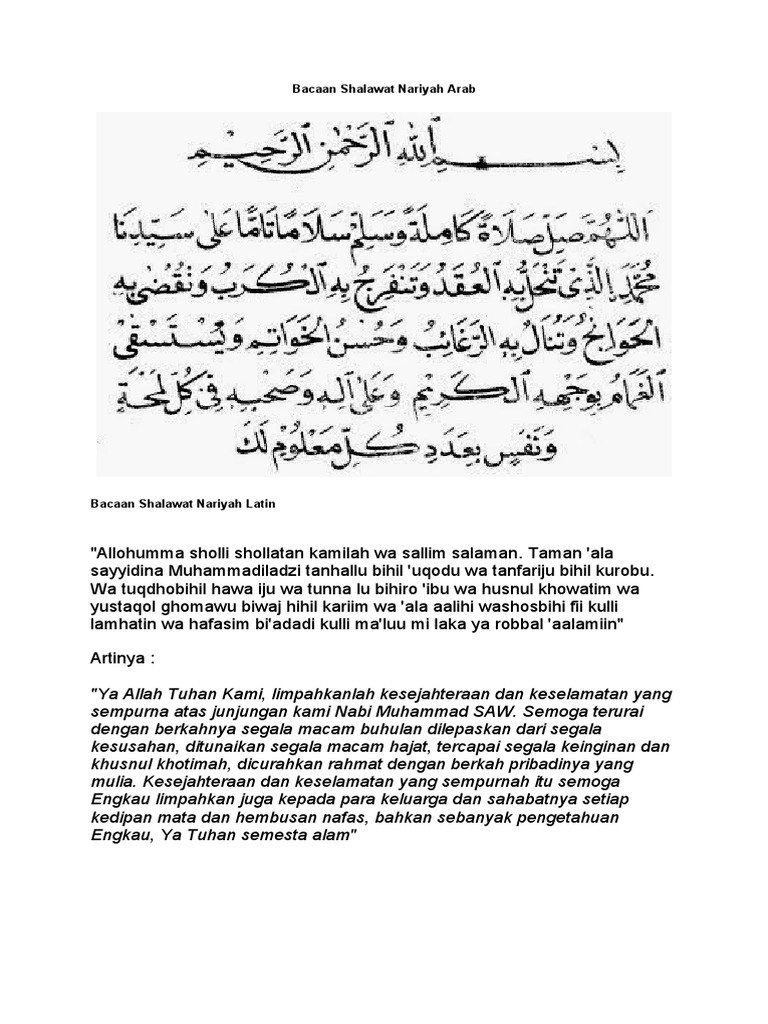 Bacaan Shalawat Nariyah Arab
بِسْمِ اللهِ الرَّحْمٰنِ الرَّحِيْمِ
اَللّٰهُمَّ صَلِّ صَلَاةً كَامِلَةً وَسَلِّمْ سَلَامًا تَامًّا عَلٰى سَيِّدِنَا
مُحَمَّدِ الَّذِىْ تَنْحَلُّ بِهِ الْعُقَدُ وَتَنْفَرِجُ بِهِ الْكُرَبُ وَتُقْضٰى بِهِ
الْحَوَائِجُ وَتُنَالُ بِهِ الرَّغَائِبُ وَحُسْنُ الْخَوَاتِمِ وَيُسْتَسْقَى
الْغَمَامُ بِوَجْهِهِ الْكَرِيْمِ وَعَلٰى اٰلِهِ وَصَحْبِهِ فِىْ كُلِّ لَمْحَةٍ
وَنَفَسٍ بِعَدَدِ كُلِّ مَعْلُوْمٍ لَكَ
Bacaan Shalawat Nariyah Latin
"Allohumma sholli shollatan kamilah wa sallim salaman. Taman 'ala
sayyidina Muhammadiladzi tanhallu bihil 'uqodu wa tanfariju bihil kurobu.
Wa tuqdhobihil hawa iju wa tunna lu bihiro 'ibu wa husnul khowatim wa
yustaqol ghomawu biwaj hihil kariim wa 'ala aalihi washosbihi fii kulli
lamhatin wa hafasim bi'adadi kulli ma'luu mi laka ya robbal 'aalamiin"
Artinya :
"Ya Allah Tuhan Kami, limpahkanlah kesejahteraan dan keselamatan yang
sempurna atas junjungan kami Nabi Muhammad SAW. Semoga terurai
dengan berkahnya segala macam buhulan dilepaskan dari segala
kesusahan, ditunaikan segala macam hajat, tercapai segala keinginan dan
khusnul khotimah, dicurahkan rahmat dengan berkah pribadinya yang
mulia. Kesejahteraan dan keselamatan yang sempurnah itu semoga
Engkau limpahkan juga kepada para keluarga dan sahabatnya setiap
kedipan mata dan hembusan nafas, bahkan sebanyak pengetahuan
Engkau, Ya Tuhan semesta alam"